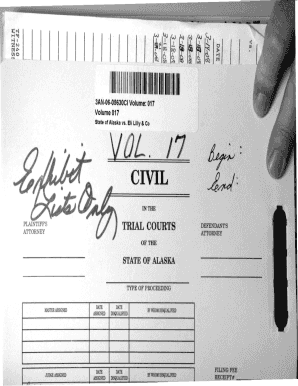 TF-200
WITNESS
3-18-08
3-18-08
3-18-08
DATE
VS.
3AN-06-05630CI Volume: 017
Volume 017
State of Alaska vs. Eli Lilly & Co
VOL. 17
Begin:
End:
Exhibit
Lists Only
CIVIL
IN THE
TRIAL COURTS
OF THE
STATE OF ALASKA
PLAINTIFF'S
ATTORNEY
DEFENDANT'S
ATTORNEY
TYPE OF PROCEEDING
MASTER ASSIGNED
DATE
ASSIGNED
DATE
DISQUALIFIED
BY WHOM DISQUALIFIED
JUDGE ASSIGNED
DATE
ASSIGNED
DATE
DISQUALIFIED
BY WHOM DISQUALIFIED
FILING FEE
RECEIPT#